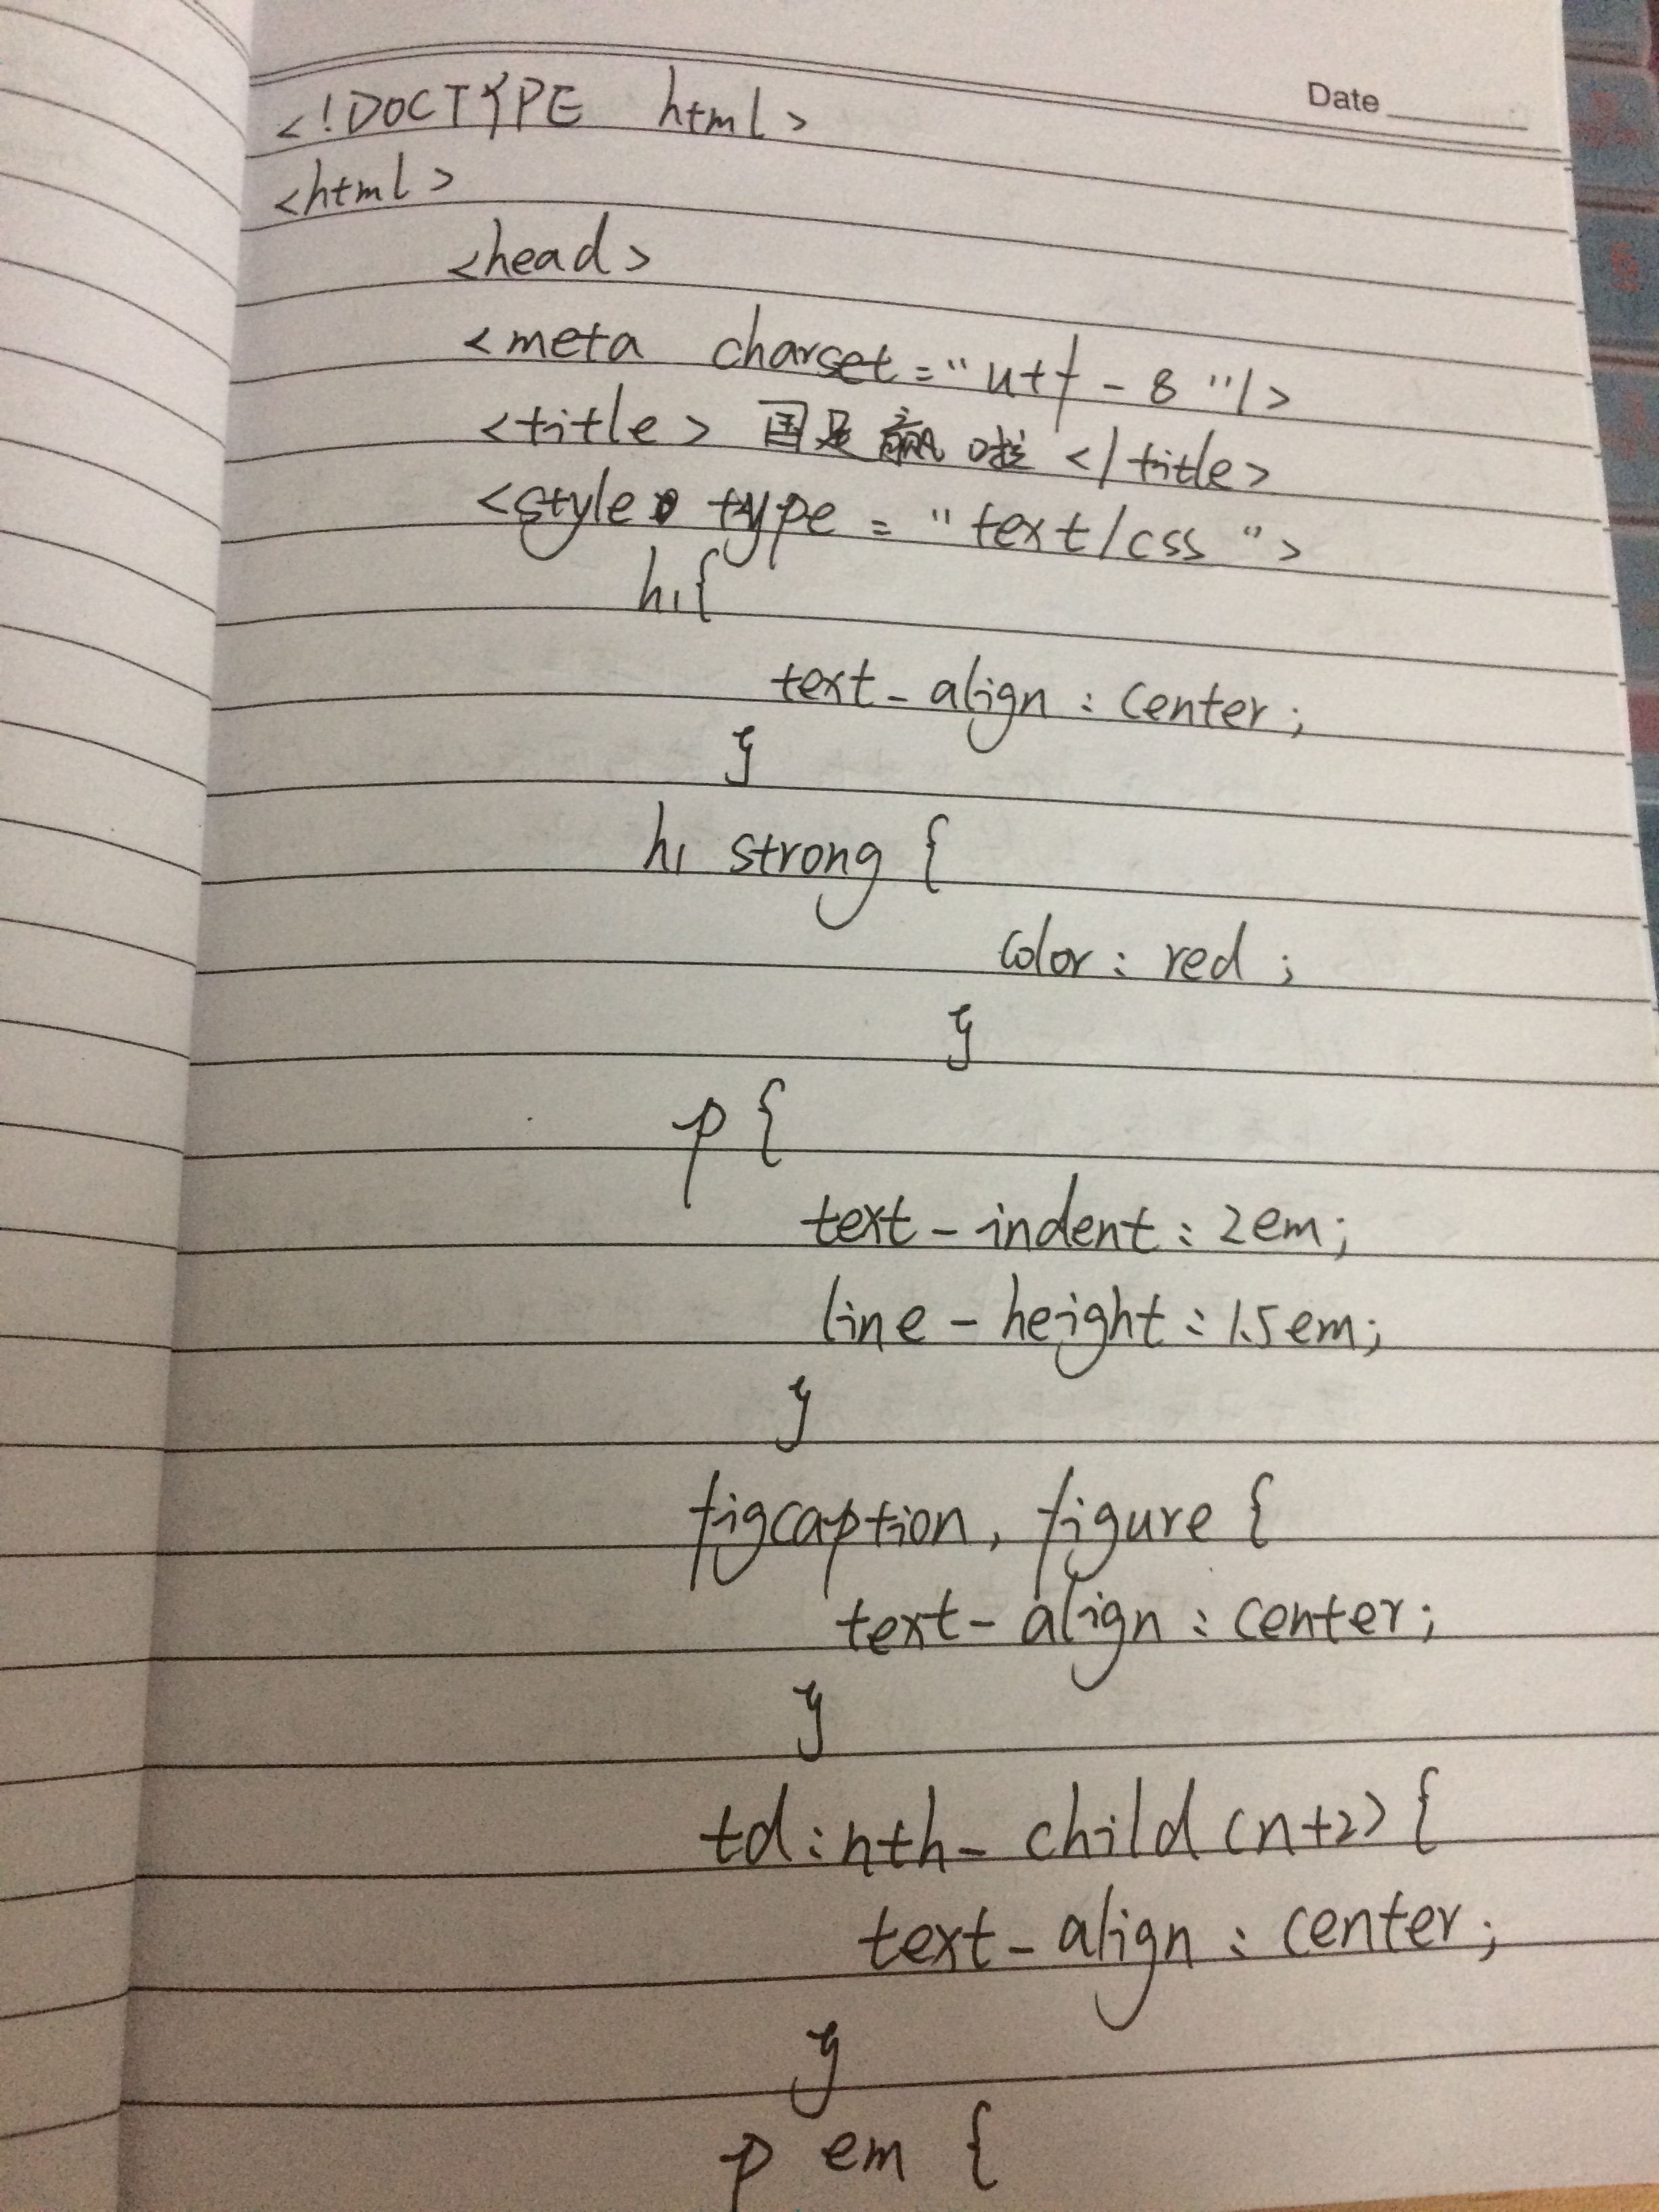 Date
<!DOCTYPE html>
<html>
<head>
<meta charset="utf-8"/>
<title>国足赢啦</title>
<style type="text/css">
h1{
text-align:center;
}
h1 strong {
color:red;
}
p{
text-indent:2em;
line-height:1.5em;
}
figcaption,figure{
text-align:center;
}
td:nth-child(n+2){
text-align:center;
}
p em {